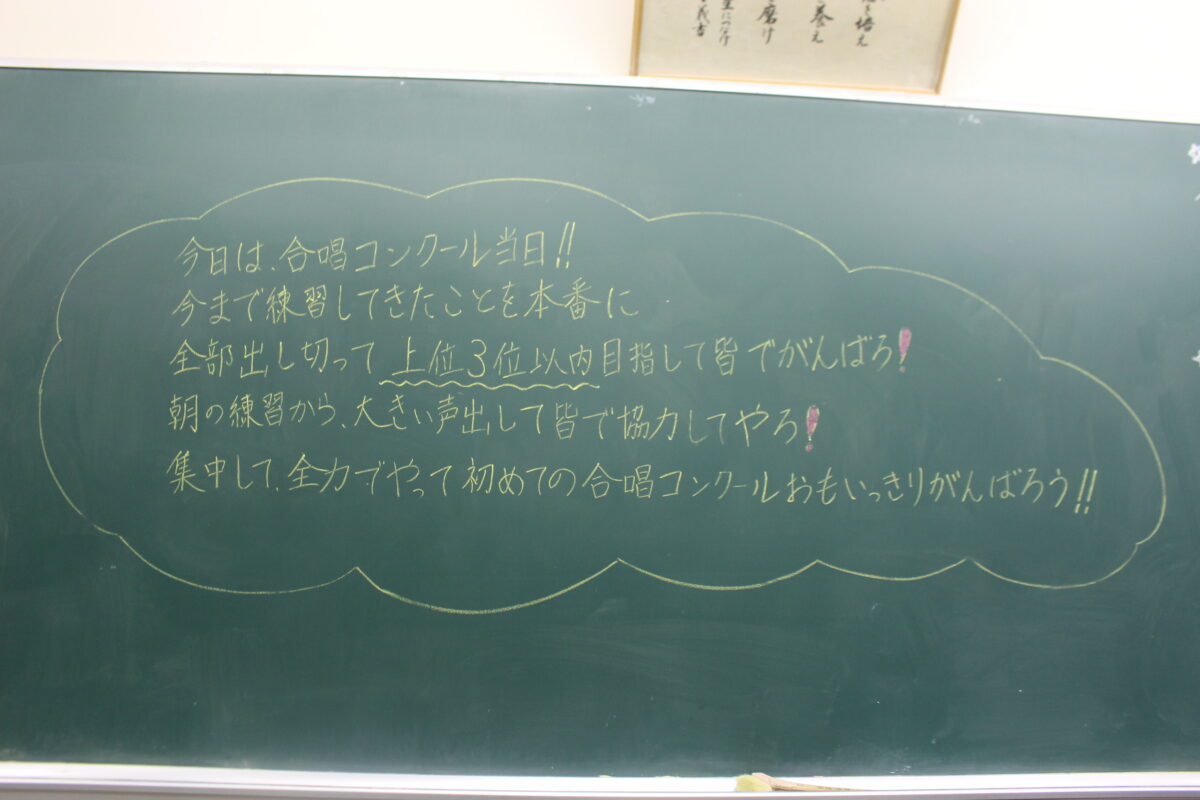 培え
養え
磨け
今日は、合唱コンクール当日!!
今まで練習してきたことを本番に
全部出し切って上位3位以内目指して皆でがんばろ!
朝の練習から、大きい声出して皆で協力してやろ!
集中して、全力でやって初めての合唱コンクールおもいっきりがんばろう!!